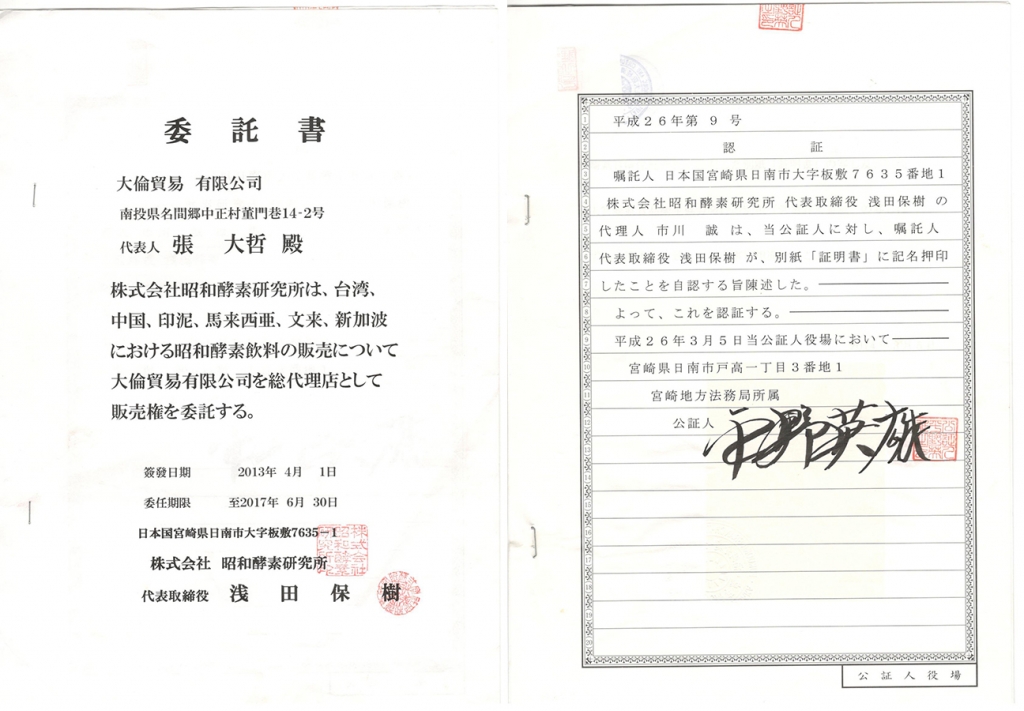 委託書
大倫貿易 有限公司
南投県名間郷中正村董門巷14-2号
代表人 張 大哲 殿
株式会社昭和酵素研究所は、台湾、
中国、印泥、馬来西亜、文来、新加波
における昭和酵素飲料の販売について
大倫貿易有限公司を総代理店として
販売権を委託する。
簽發日期 2013年 4月 1日
委任期限 至2017年 6月 30日
日本国宮崎県日南市大字板敷7635−1
株式会社 昭和酵素研究所
代表取締役 浅田保樹
平成26年第 9 号
認 証
嘱託人 日本国宮崎県日南市大字板敷7635番地1
株式会社昭和酵素研究所 代表取締役 浅田保樹 の
代理人 市川 誠 は、当公証人に対し、嘱託人
代表取締役 浅田保樹 が、別紙「証明書」に記名押印
したことを自認する旨陳述した。
よって、これを認証する。
平成26年3月5日当公証人役場において
宮崎県日南市戸高一丁目3番地1
宮崎地方法務局所属
公証人
公証人役場